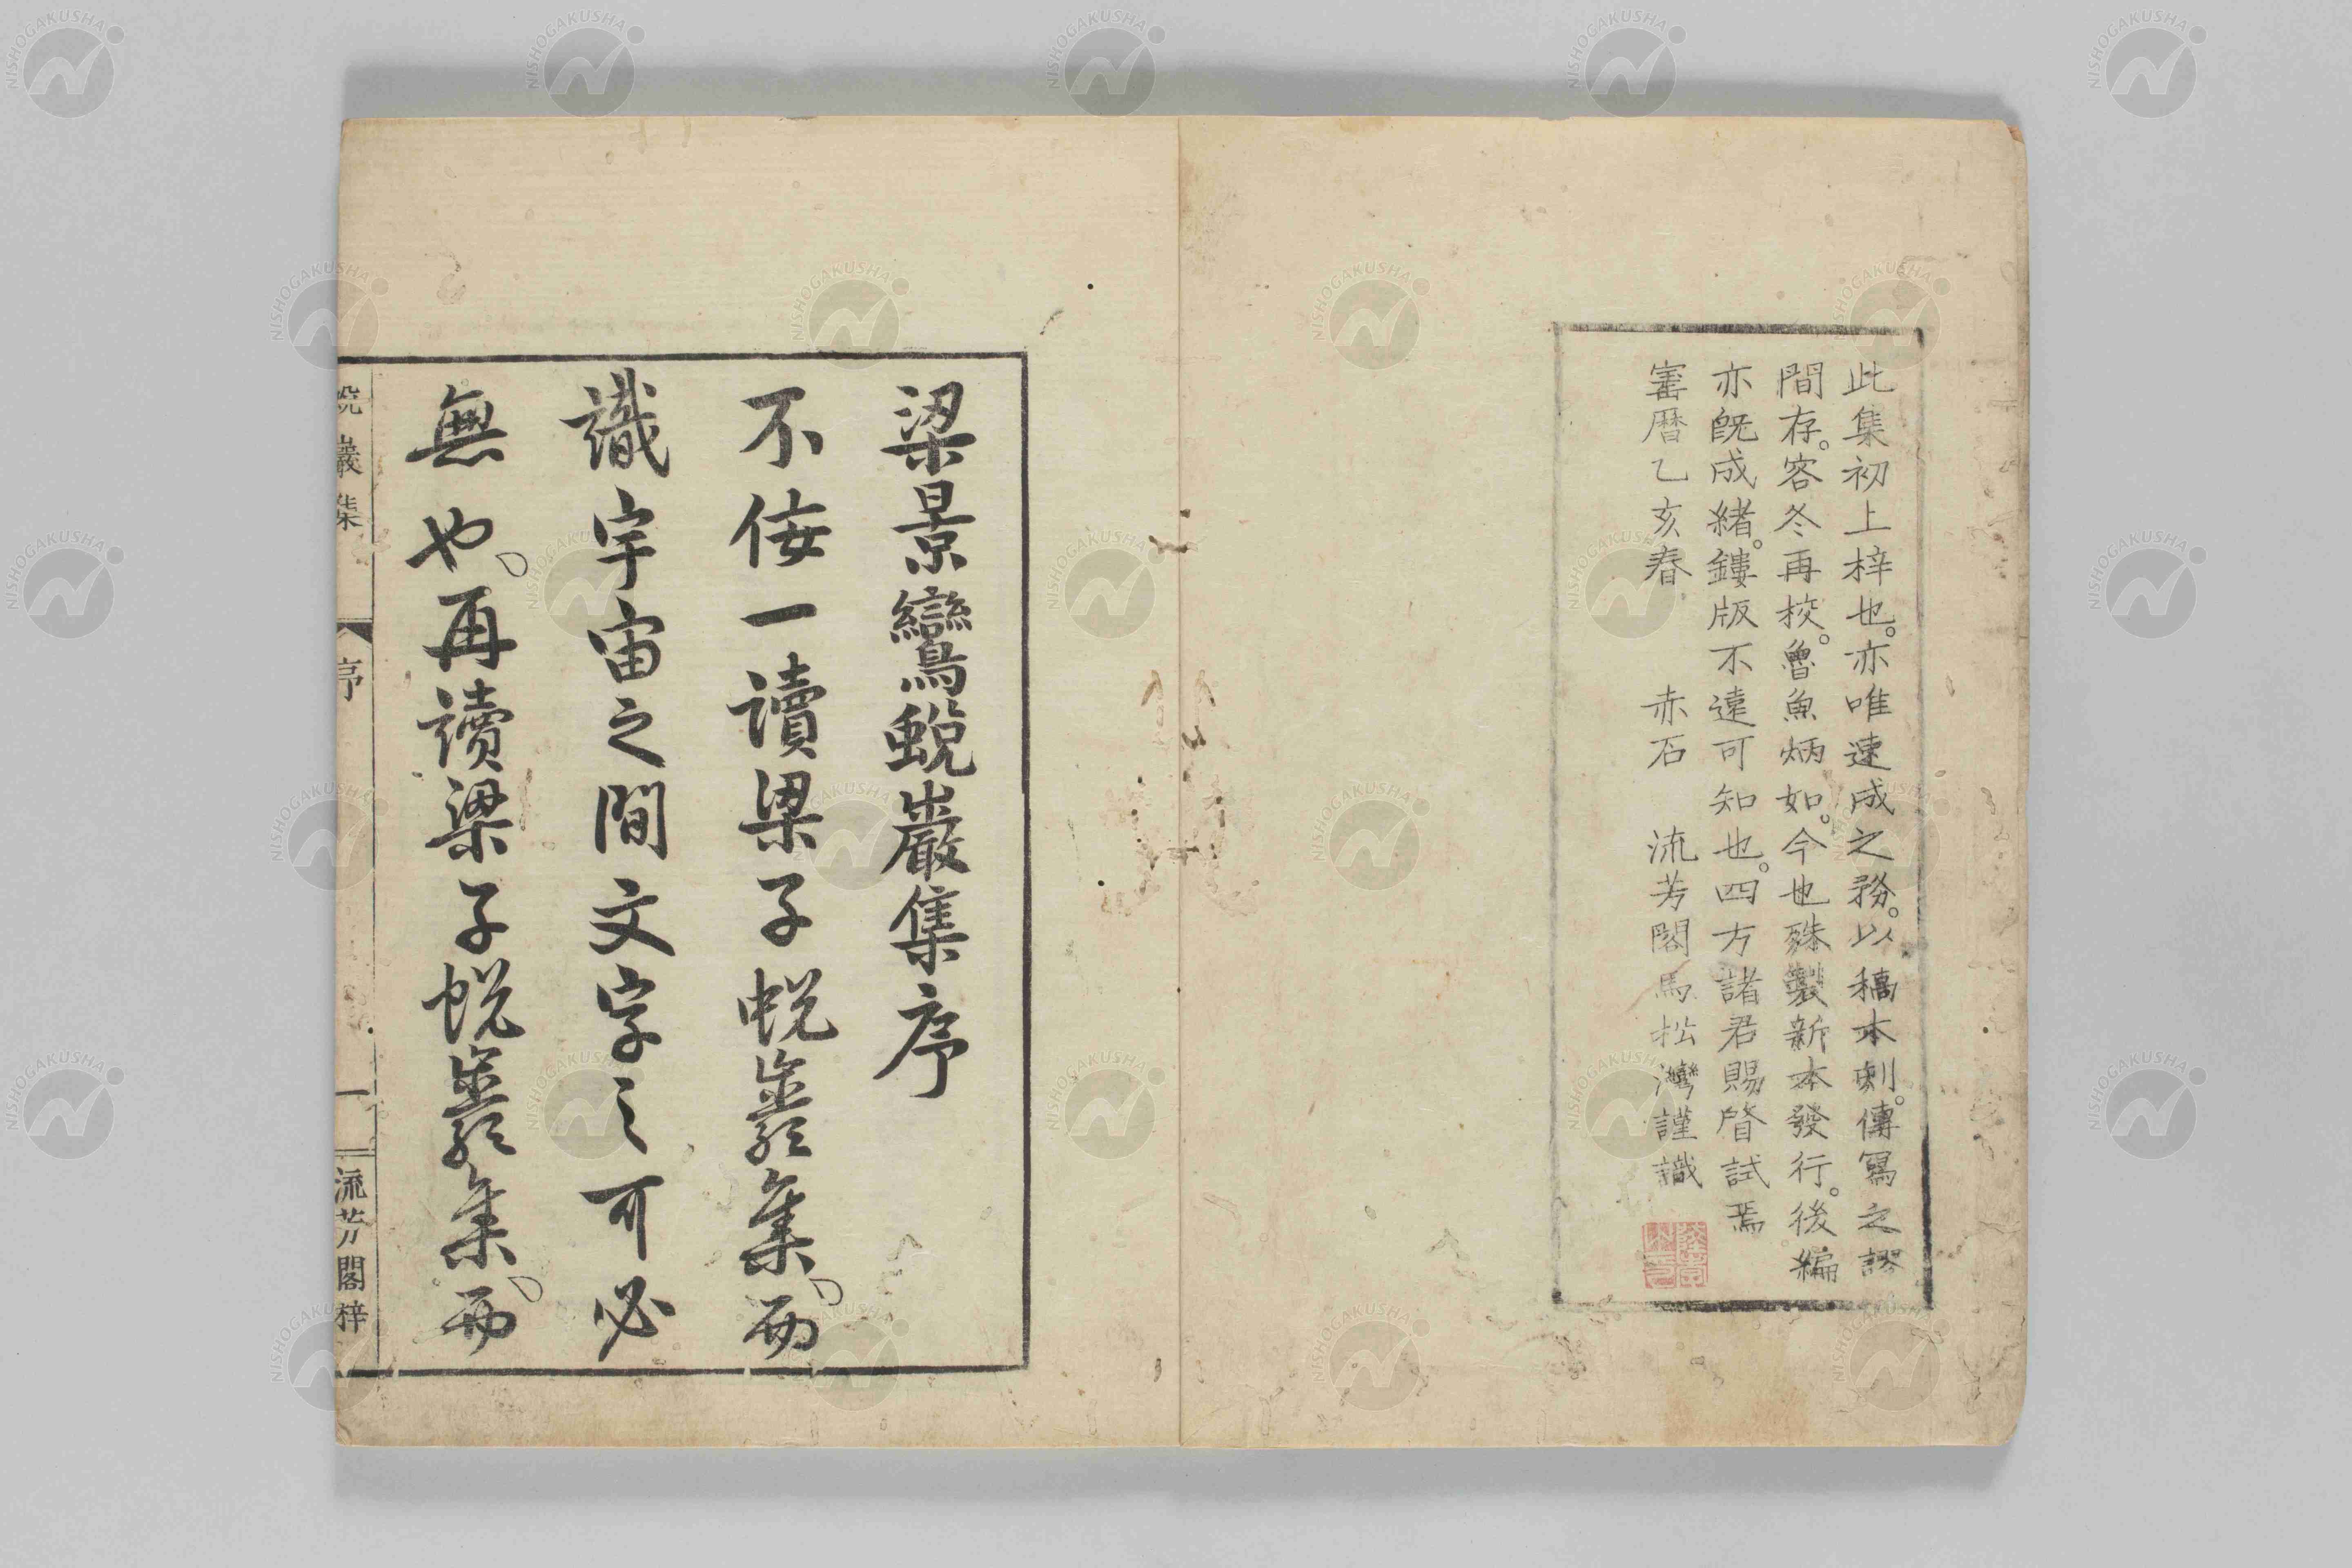 此集初上梓也。亦唯速成之務。以稿本刻。傳寫之謬
間存。客冬再校。魯魚炳如。今也殊製新本發行。後編
亦既成緒。鏤版不遠可知也。四方諸君賜督試焉
寶曆乙亥春 赤石 流芳閣馬松灣謹識
梁景鸞蛻巖集序
不佞一讀梁子蛻巖集。而
識宇宙之間文字之可必
無也。再讀梁子蛻巖集。而
蛻巖集 序 一 流芳閣梓
NISHOGAKUSHA